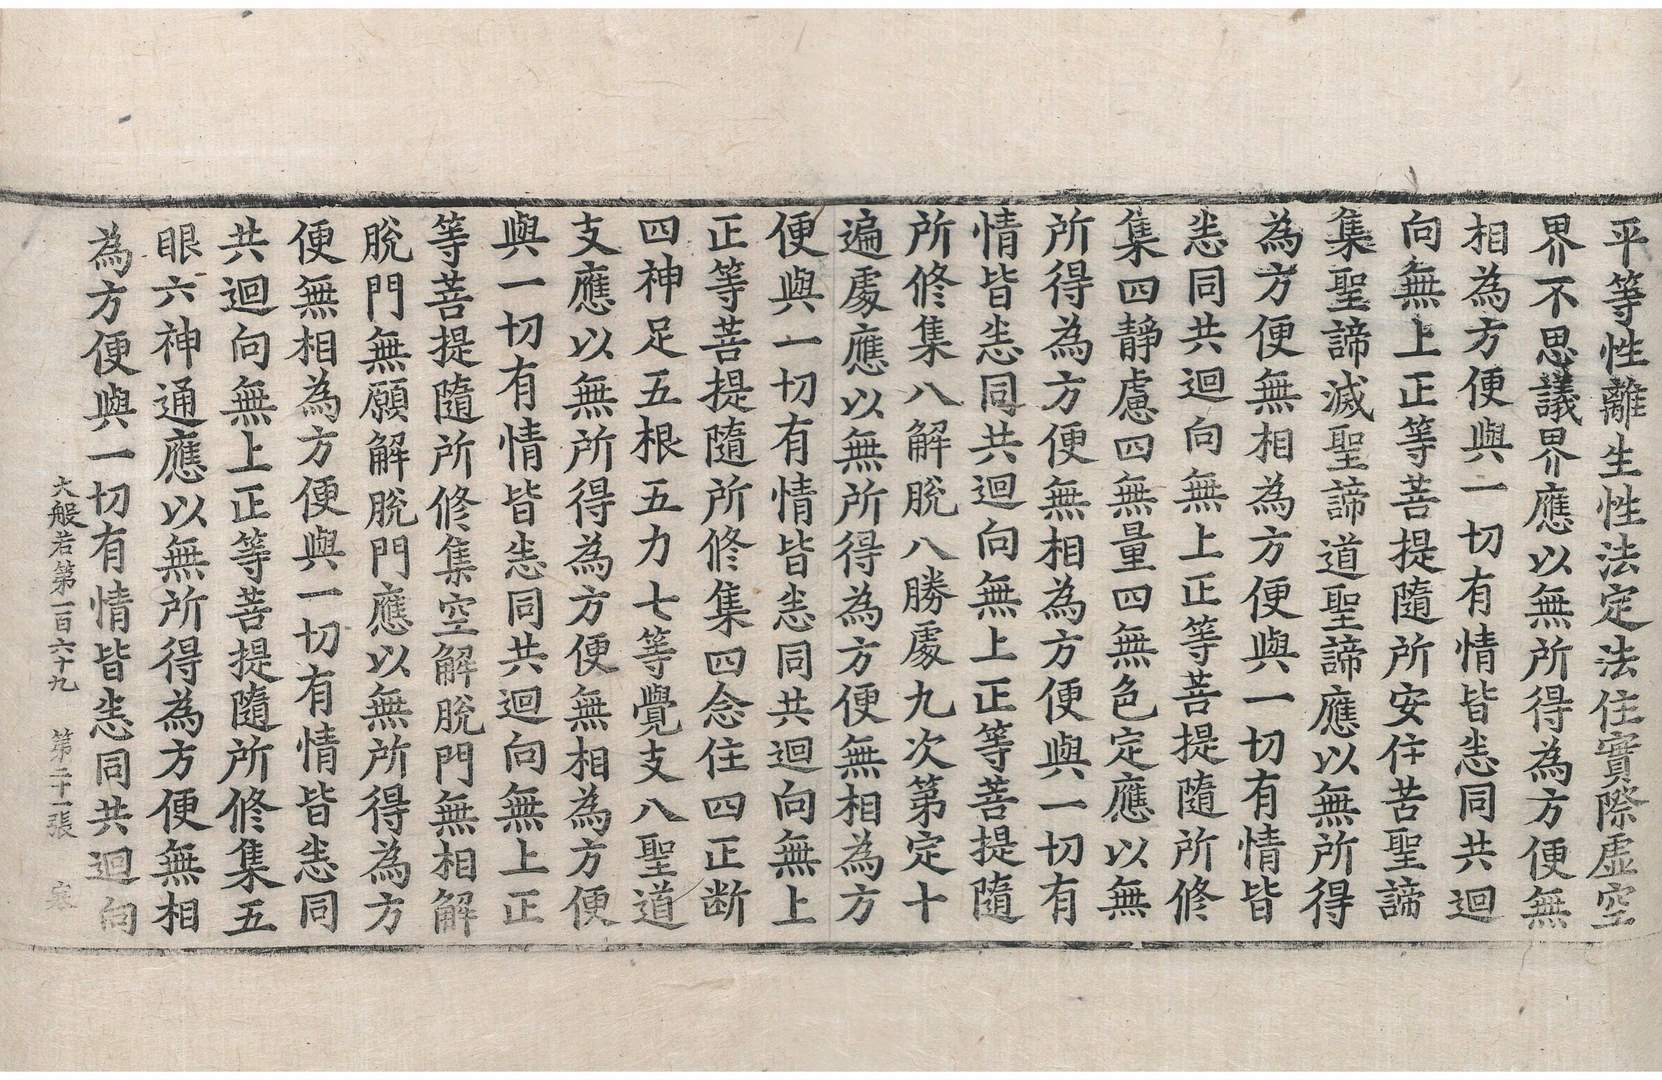 平等性離生性法定法住實際虛空
界不思議界應以無所得為方便無
相為方便與一切有情皆悉同共迴
向無上正等菩提隨所安住苦聖諦
集聖諦滅聖諦道聖諦應以無所得
為方便無相為方便與一切有情皆
悉同共迴向無上正等菩提隨所修
集四靜慮四無量四無色定應以無
所得為方便無相為方便與一切有
情皆悉同共迴向無上正等菩提隨
所修集八解脫八勝處九次第定十
遍處應以無所得為方便無相為方
便與一切有情皆悉同共迴向無上
正等菩提隨所修集四念住四正斷
四神足五根五力七等覺支八聖道
支應以無所得為方便無相為方便
與一切有情皆悉同共迴向無上正
等菩提隨所修集空解脫門無相解
脫門無願解脫門應以無所得為方
便無相為方便與一切有情皆悉同
共迴向無上正等菩提隨所修集五
眼六神通應以無所得為方便無相
為方便與一切有情皆悉同共迴向
大般若第一百六十九 第二十一張